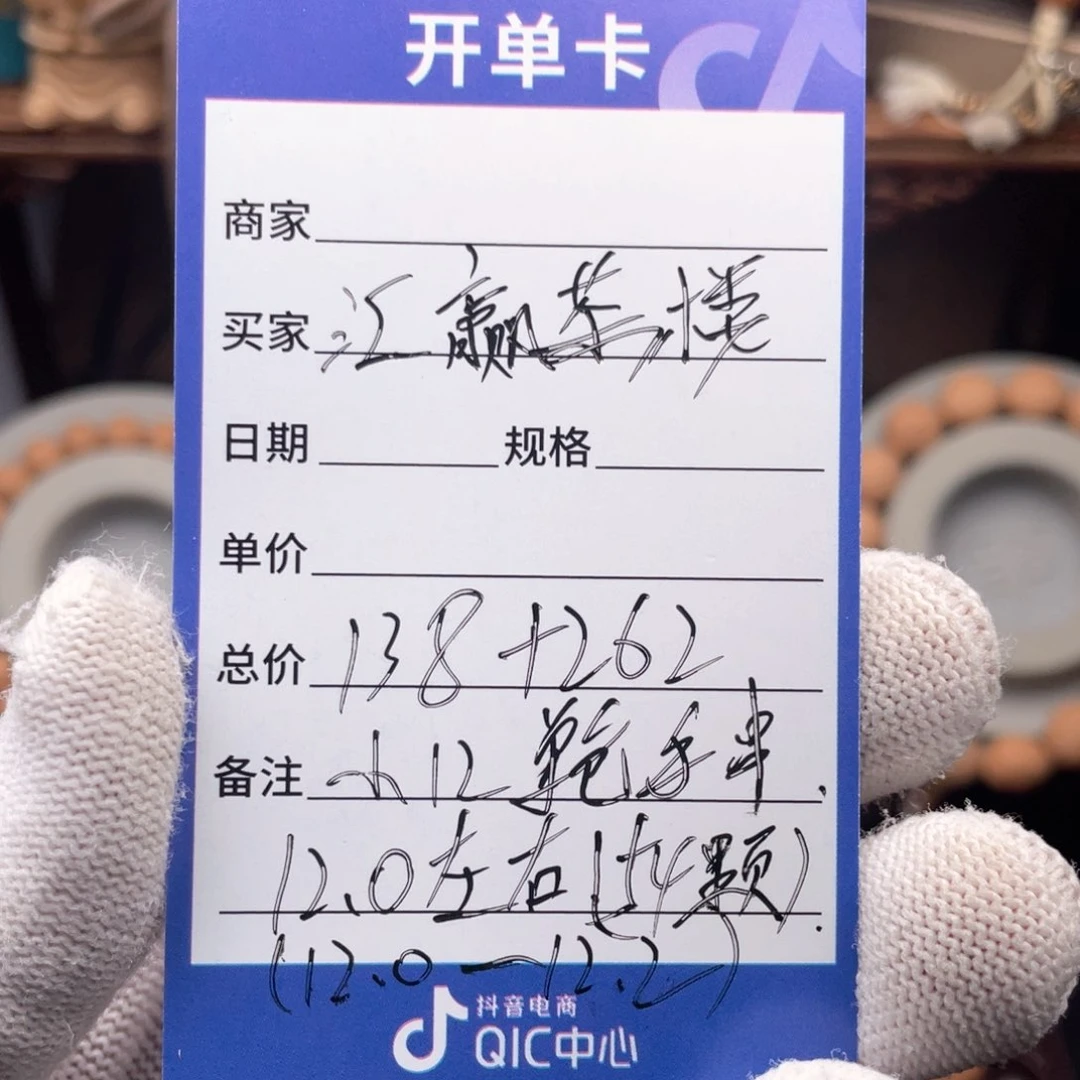 开单卡
商家
买家 汇赢茶楼
日期 规格
单价
总价 138+262
备注 12 手串.
12.0左右(14颗).
(12.0—12.2)
抖音电商
QIC中心